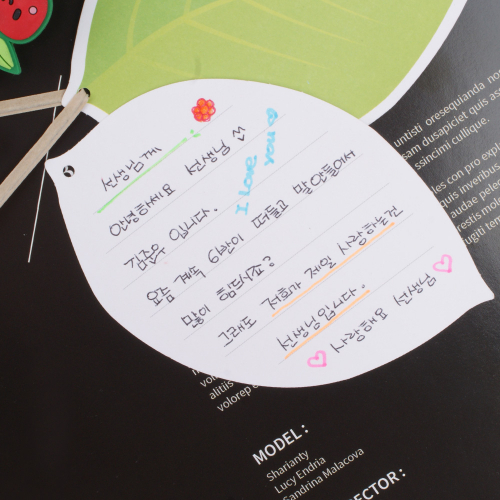 선생님께
안녕하세요 선생님
입니다.
I love you
요즘 계속 6학년이 떠들고 말 안들어서
많이 힘드시죠?
그래도 저희가 제일 사랑하는건
선생님 입니다.
사랑해요 선생님
untisti oresequianda
sam dusapiciet quis
ssincimi cullique.
con pro
quis inveribus
alitiis
volorep
MODEL:
Sharianty
Lucy Endria
Sandrina Malacova
ECTOR: